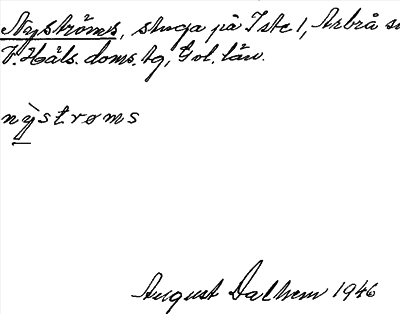 Nyströms, stuga på Iste 1, Arbrå
V. Häls. doms. tg, Gvl. län.
nỳstrøms
August Dalhem 1946